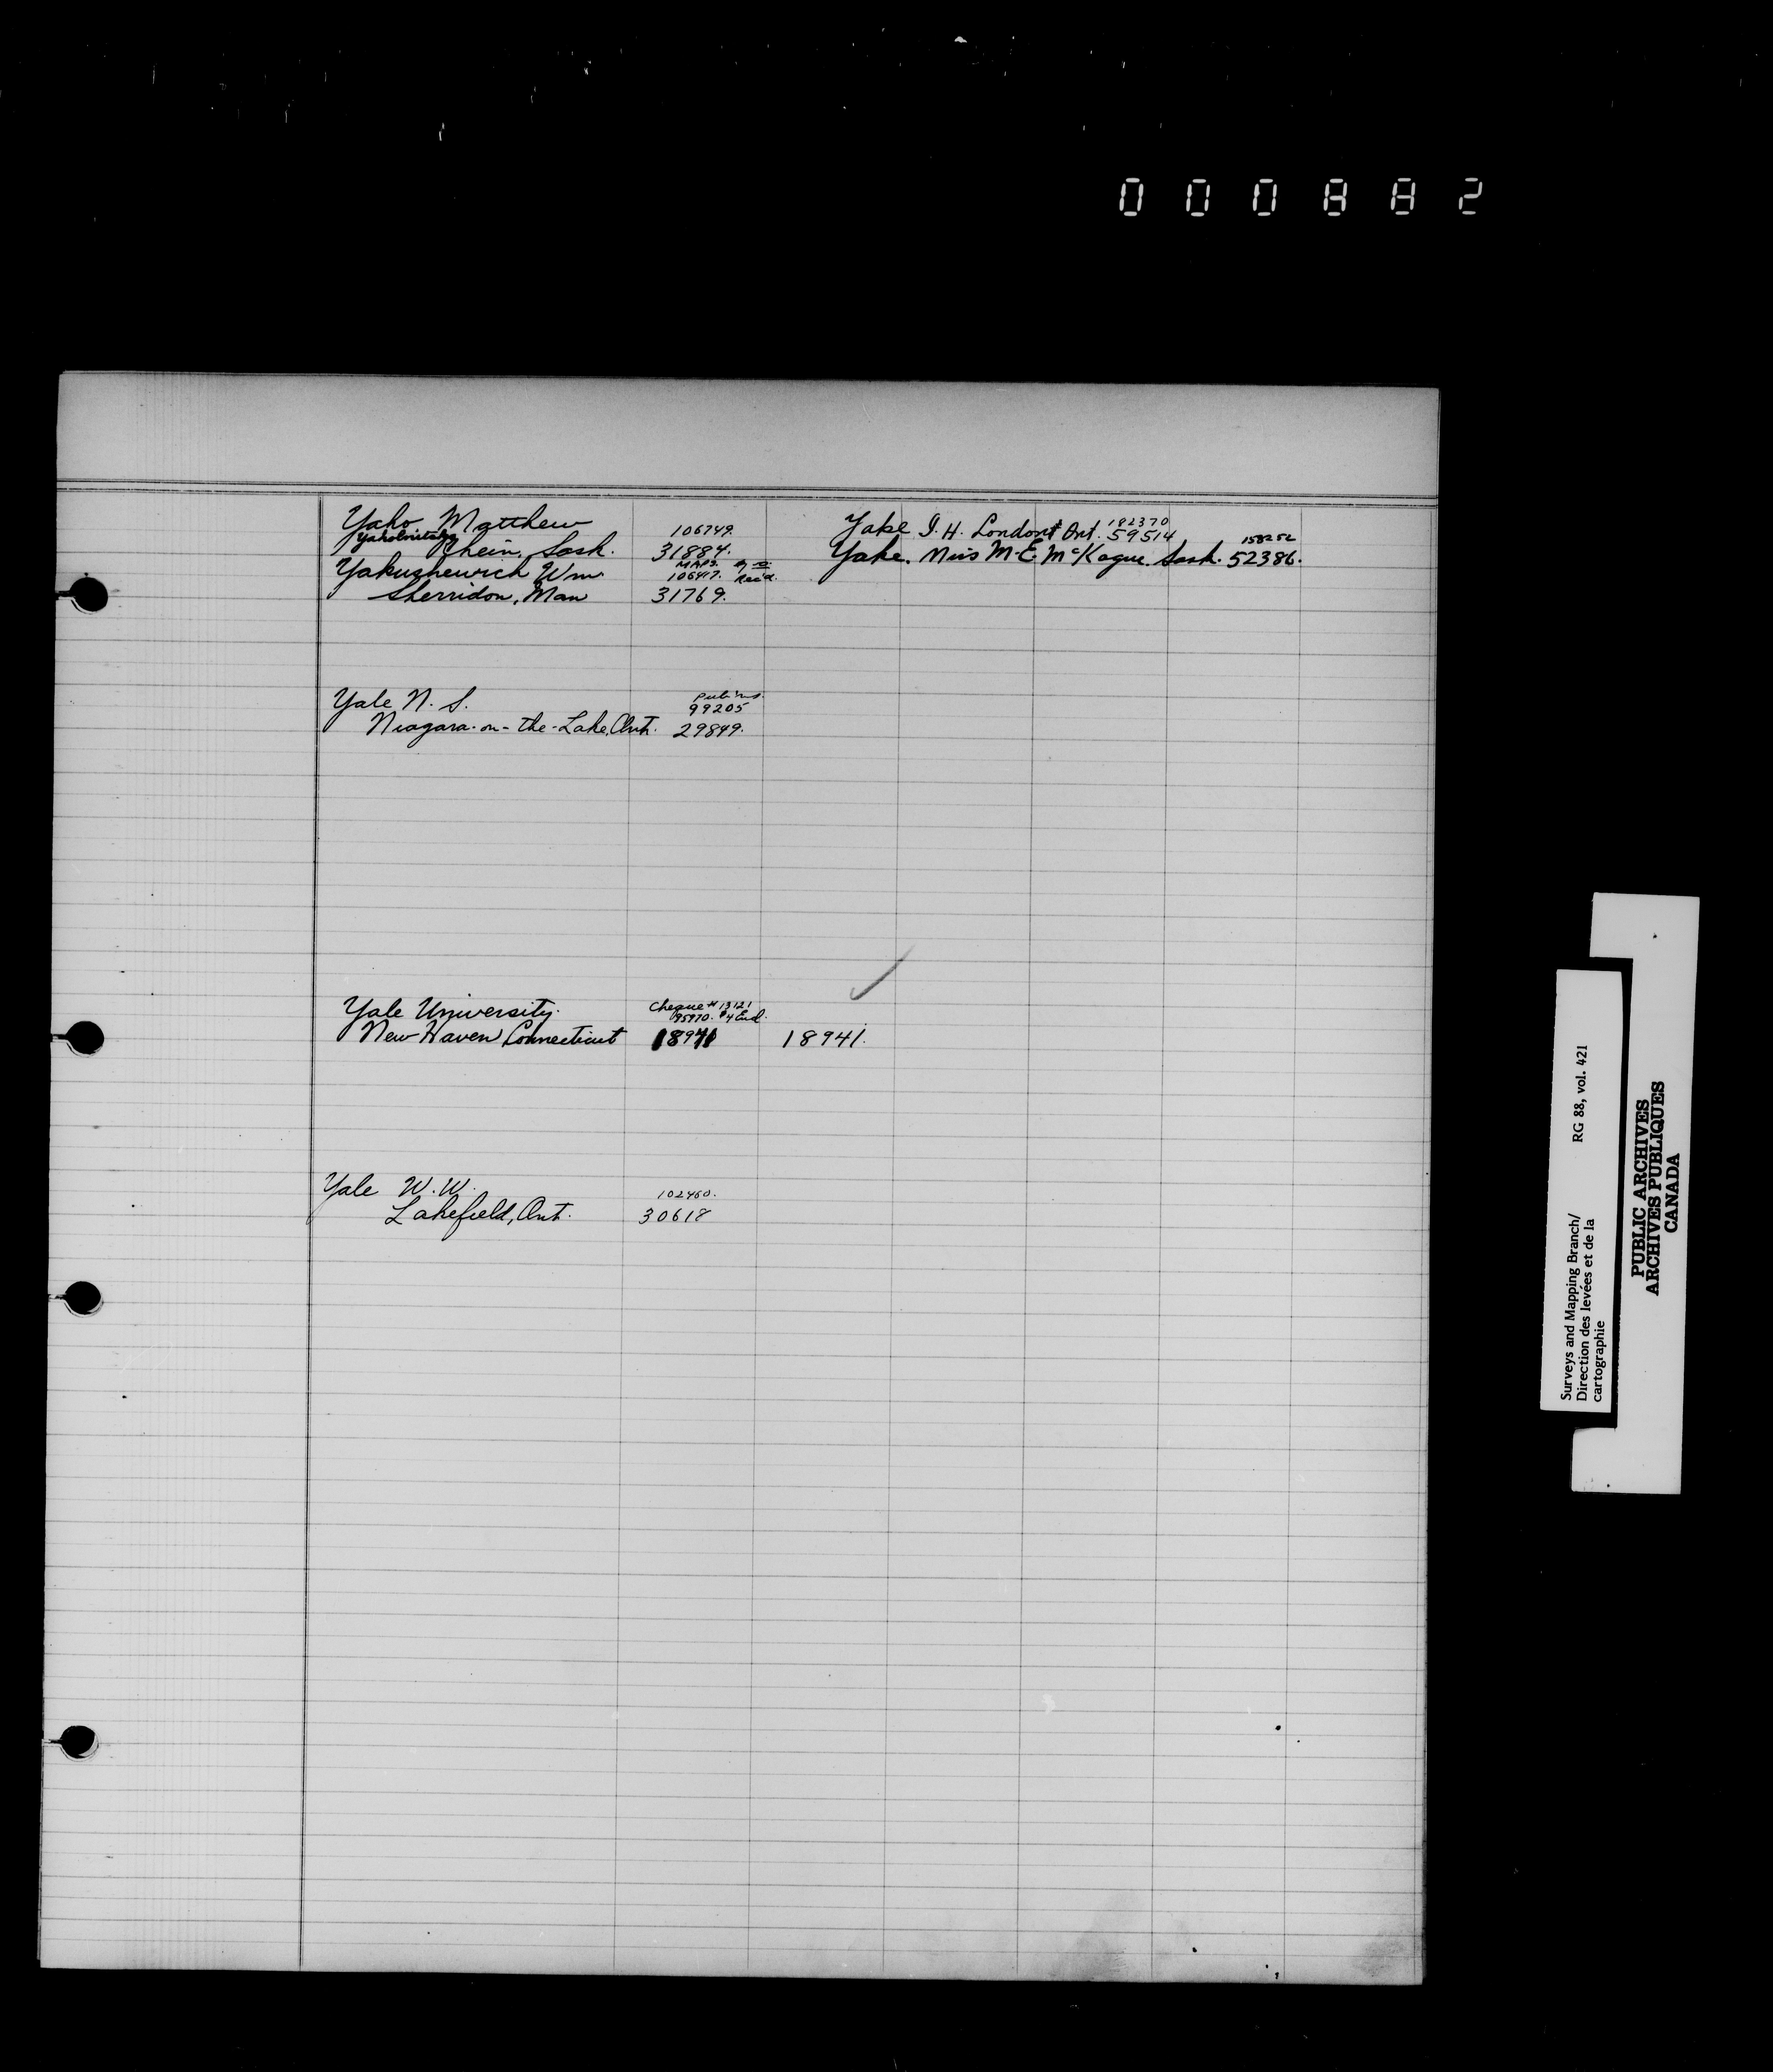 000882
Yaho Matthew 106749.
Rhein, Sask. 31884.
Yakushewich Wm MAPS. 106417. Rec'd.
Sherridon, Man 31769.
Yake I. H. London Ont. 192370 59514
Yake. Miss M. E. McKague. Sask. 158252 52386.
Yale N. S. Pub'ns. 99205
Niagara-on-the-Lake, Ont. 29849.
Yale University. Cheque # 13121
95970. $4 End.
New Haven Connecticut 18941 18941.
Yale W. W. 102460.
Lakefield, Ont. 30618
Surveys and Mapping Branch/ RG 88, vol. 421
Direction des levées et de la
cartographie
PUBLIC ARCHIVES
ARCHIVES PUBLIQUES
CANADA